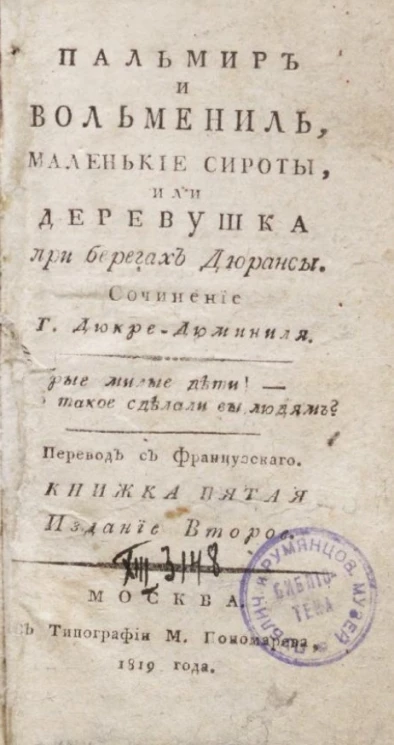 ПАЛЬМИРЪ
И
ВОЛЬМЕНИЛЬ,
МАЛЕНЬКІЕ СИРОТЫ,
ИЛИ
ДЕРЕВУШКА
при берегахъ Дюрансы.
Сочиненіе
Г. Дюкре-Дюминиля.
рые милые дѣти! —
такое сдѣлали вы людямъ?
Переводъ съ Французскаго.
КНИЖКА ПЯТАЯ
Изданіе Второе.
XIII 3148
МОСКВА.
Ъ Типографіи М. Пономарева,
1819 года.
ПУБЛИЧ. И РУМЯНЦОВ. МУЗЕЙ
БИБЛІО-
ТЕКА